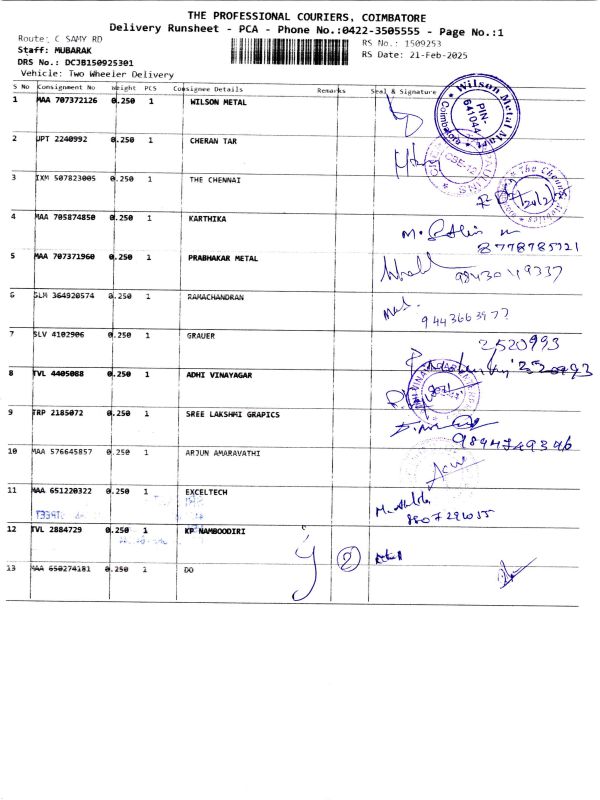 THE PROFESSIONAL COURIERS, COIMBATORE
Delivery Runsheet - PCA - Phone No.:0422-3505555 - Page No.:1
Route: C SAMY RD
RS No.: 1509253
Staff: MUBARAK
RS Date: 21-Feb-2025
DRS No.: DCJB150925301
Vehicle: Two Wheeler Delivery
S No Consignment No Weight PCS Consignee Details Remarks Seal & Signature
1 MAA 707372126 0.250 1 WILSON METAL
Wilson Metal Mart
PIN-
641044
2 JPT 2240992 0.250 1 CHERAN TAR
3 IXM 507823005 0.250 1 THE CHENNAI
The Chennai
4 MAA 705874850 0.250 1 KARTHIKA
8778785721
5 MAA 707371960 0.250 1 PRABHAKAR METAL
9843049337
6 SLM 364920574 0.250 1 RAMACHANDRAN
9443663977
7 SLV 4102906 0.250 1 GRAUER
2520993
8 TVL 4405088 0.250 1 ADHI VINAYAGAR
2520993
9 TRP 2185072 0.250 1 SREE LAKSHMI GRAPICS
9894749396
10 MAA 576645857 0.250 1 ARJUN AMARAVATHI
11 MAA 651220322 0.250 1 EXCELTECH
12 TVL 2884729 0.250 1 KP NAMBOODIRI
2
13 MAA 650274181 0.250 1 DO